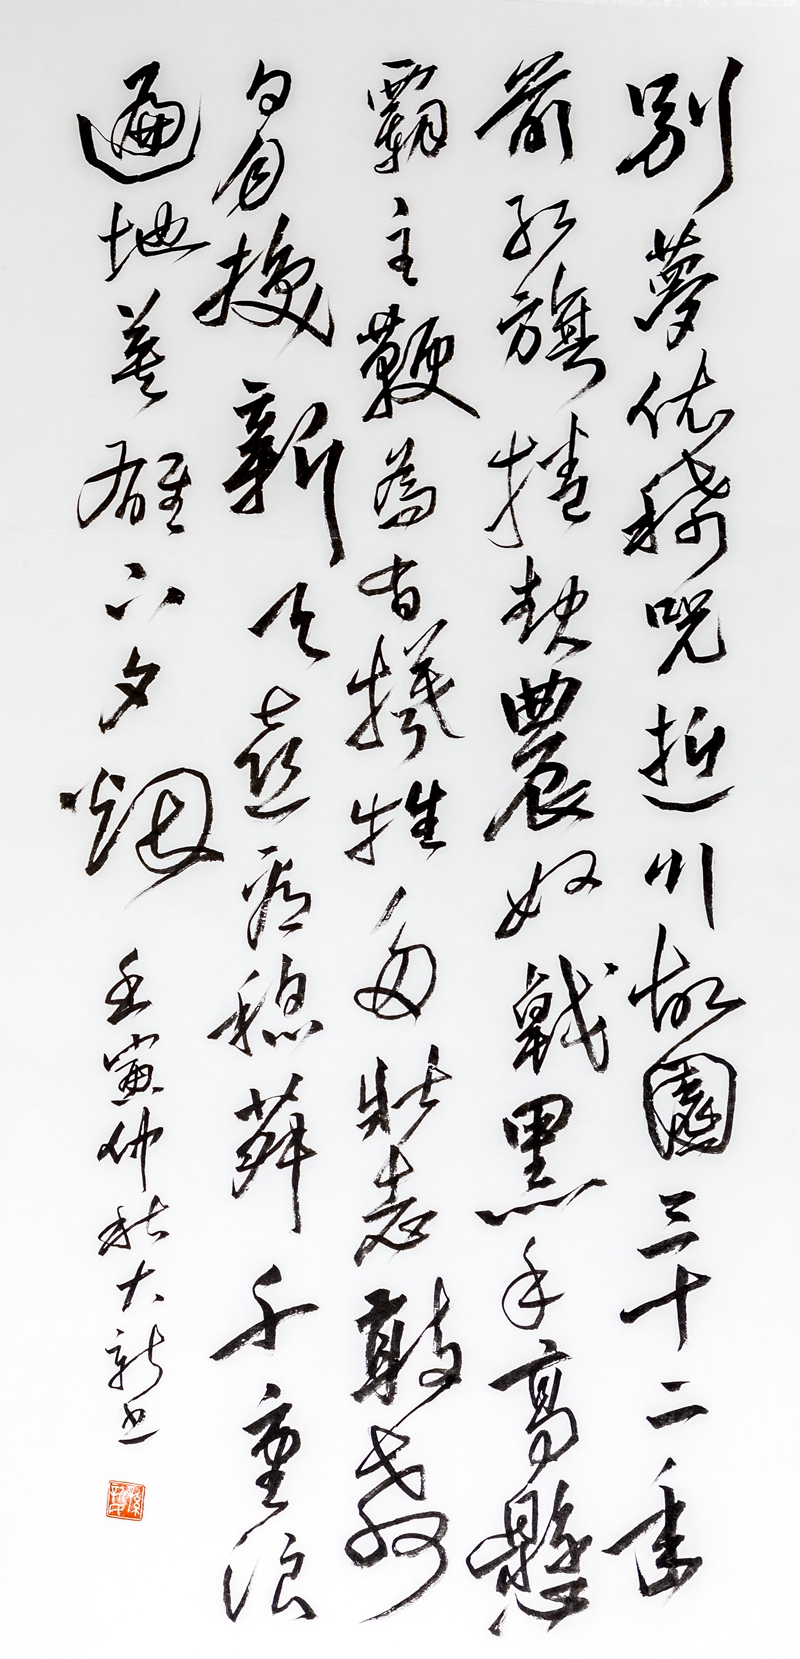 別夢依稀咒逝川故園三十二年
前红旗捲起農奴戟黑手高懸
霸主鞭為有犧牲多壯志敢教
日月換新天喜看稻菽千重浪
遍地英雄下夕烟
壬寅仲秋大新书